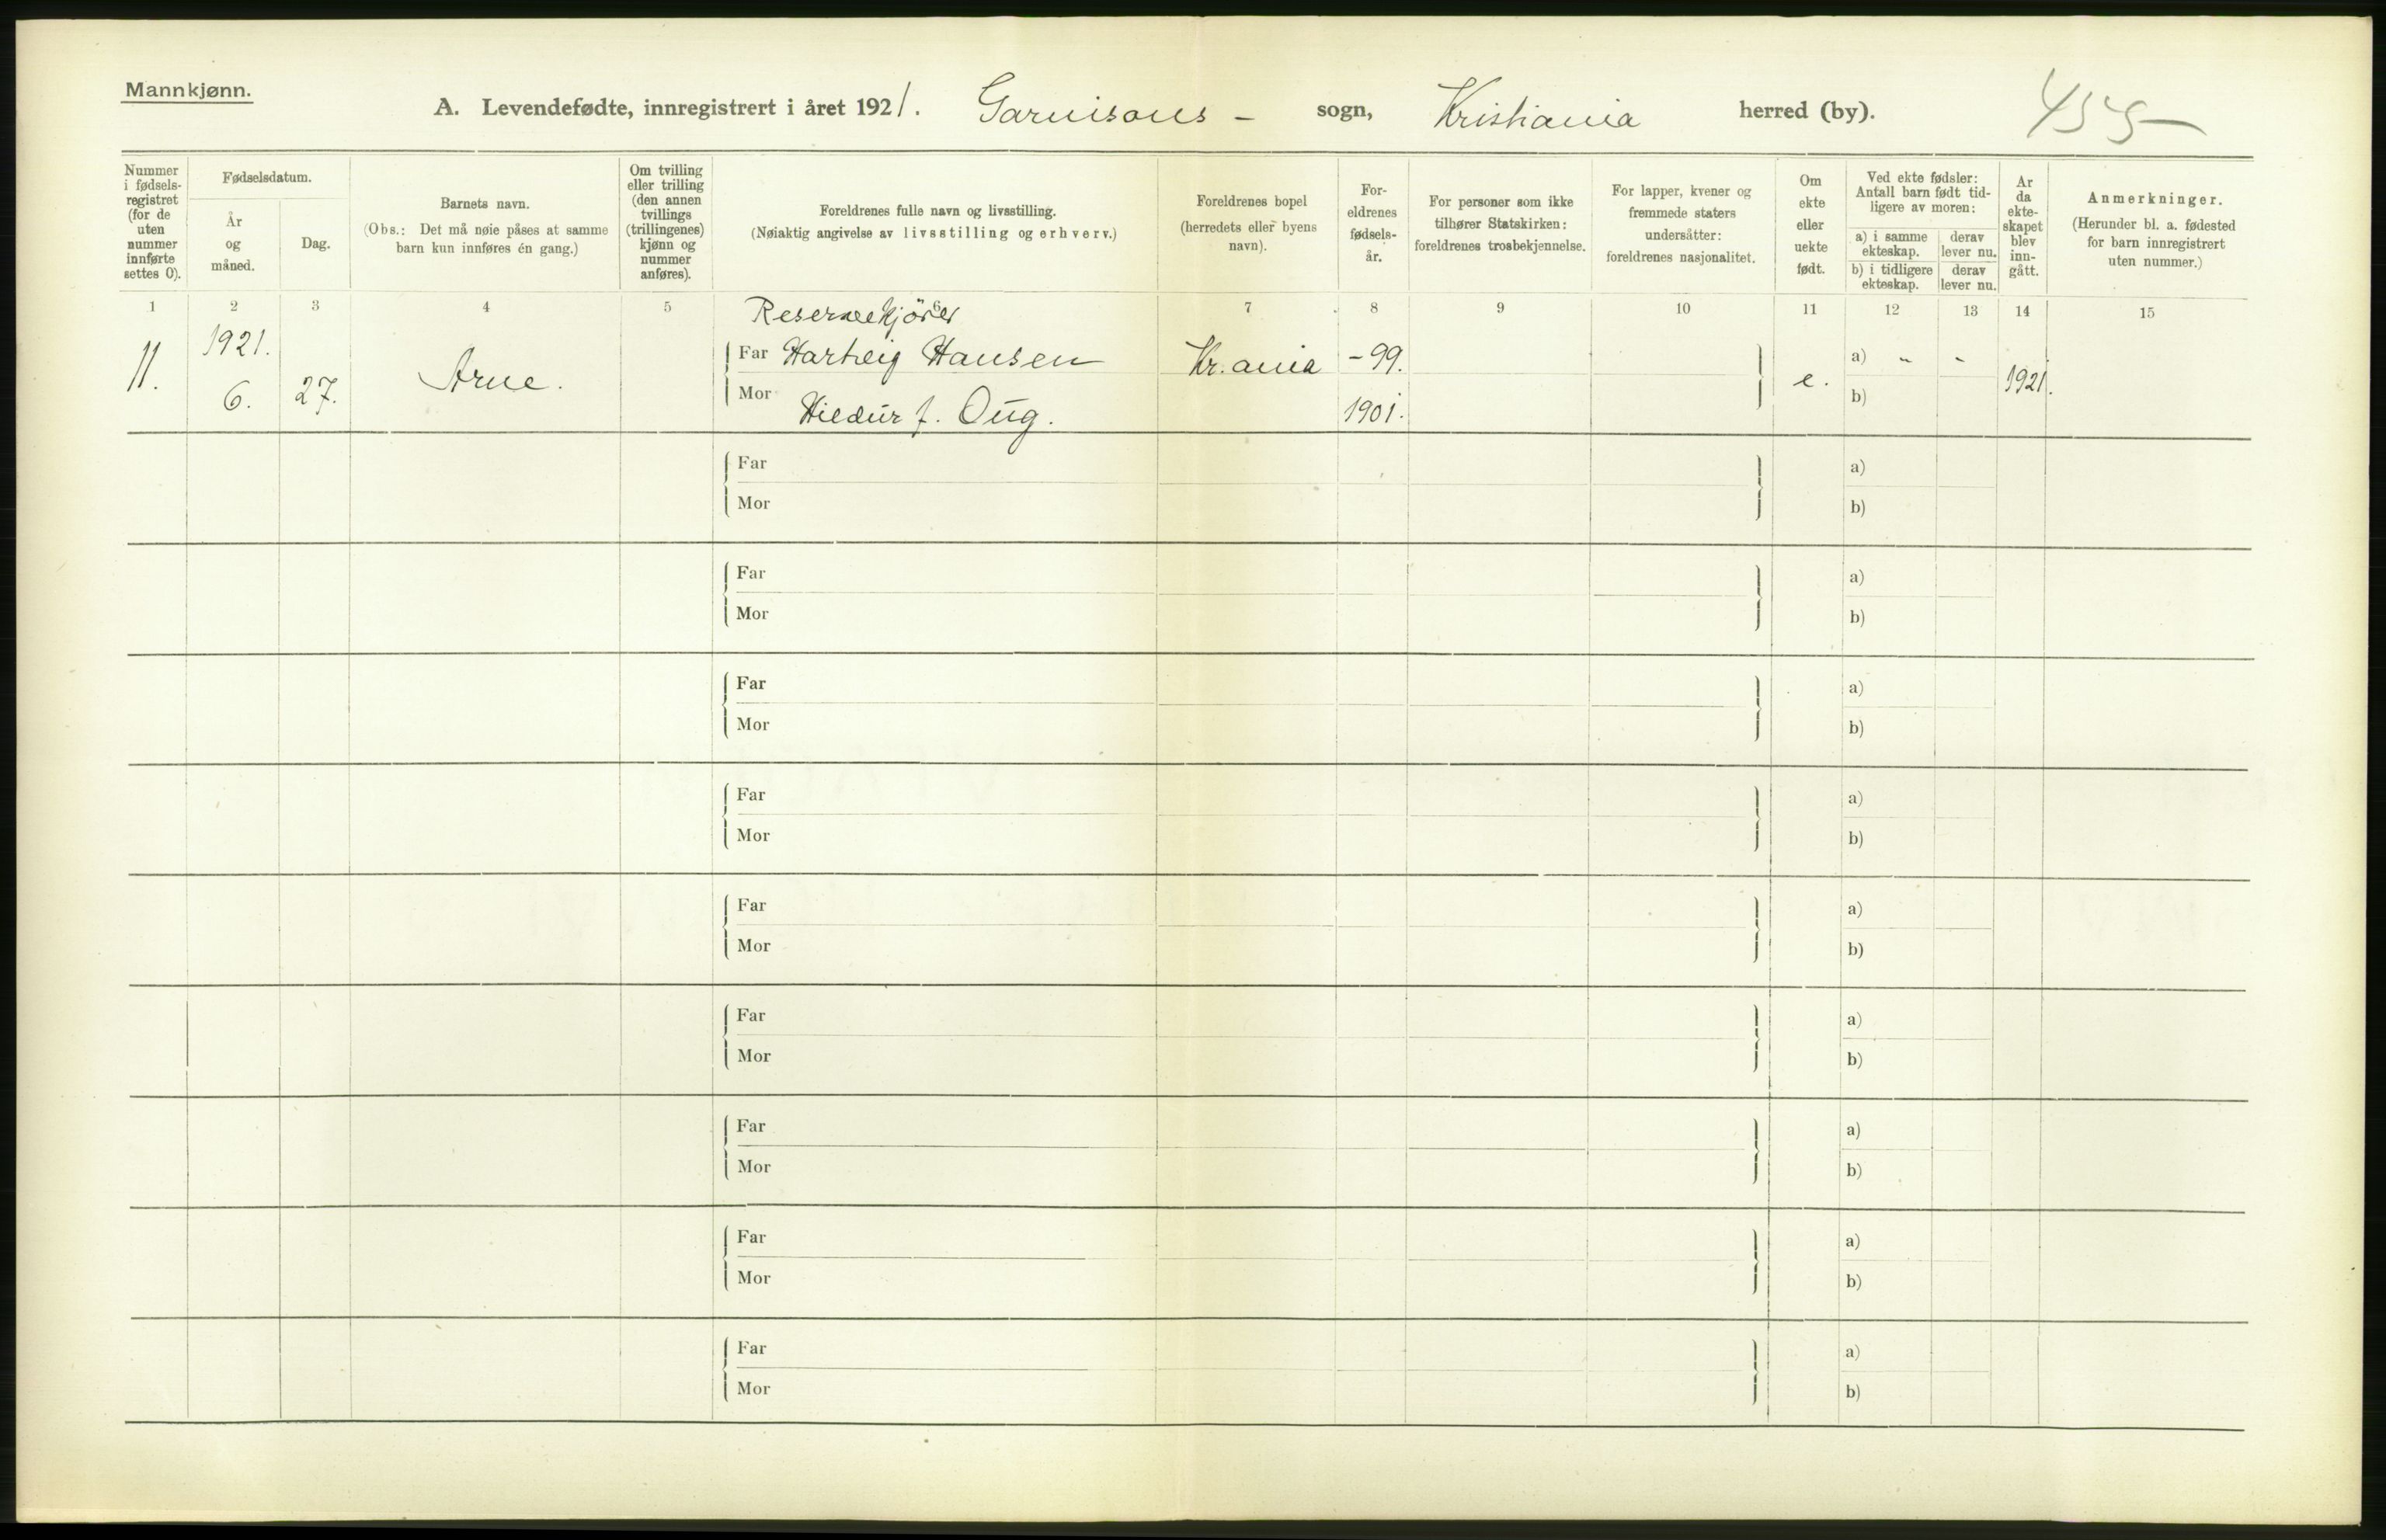 Mannkjønn.
A. Levendefødte, innregistrert i året 1921. Garnisons - sogn, Kristiania herred (by). 455
Nummer i fødsels-registret (for de uten nummer innførte settes 0).
Fødselsdatum.
År og måned.
Dag.
Barnets navn.
(Obs.: Det må nøie påses at samme barn kun innføres én gang.)
Om tvilling eller trilling (den annen tvillings (trillingenes) kjønn og nummer anføres).
Foreldrenes fulle navn og livsstilling.
(Nøiaktig angivelse av livsstilling og erhverv.)
Foreldrenes bopel
(herredets eller byens navn).
For-eldrenes fødsels-år.
For personer som ikke tilhører Statskirken: foreldrenes trosbekjennelse.
For lapper, kvener og fremmede staters undersåtter: foreldrenes nasjonalitet.
Om ekte eller uekte født.
Ved ekte fødsler: Antall barn født tid-ligere av moren:
a) i samme ekteskap.
derav lever nu.
b) i tidligere ekteskap.
derav lever nu.
År da ekte-skapet blev inn-gått.
Anmerkninger.
(Herunder bl. a. fødested for barn innregistrert uten nummer.)
1 2 3 4 5 6 7 8 9 10 11 12 13 14 15
Reservekjörer
11. 1921. 6. 27. Arne. Far Hartvig Hansen Kr.ania -99. e. a) " - 1921.
Mor Hildur f. Oug. 1901. b)
Far a)
Mor b)
Far a)
Mor b)
Far a)
Mor b)
Far a)
Mor b)
Far a)
Mor b)
Far a)
Mor b)
Far a)
Mor b)
Far a)
Mor b)
Far a)
Mor b)